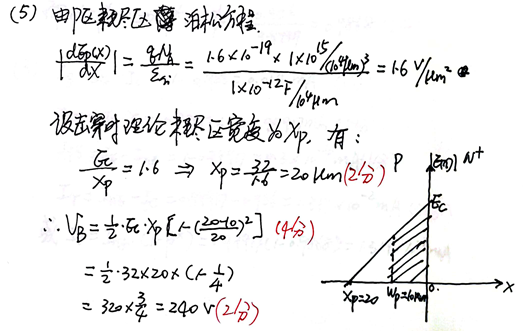 (5) 由P区耗尽区薄泊松方程.
|dEp(x)/dx| = qNA/εsi = 1.6×10⁻¹⁹ × 1×10¹⁵/(10⁴μm)³ / 1×10⁻¹²F/10⁴μm = 1.6 V/μm²
设击穿时理论耗尽区宽度为Xp, 有:
Ec/Xp = 1.6 ⇒ Xp = 32/1.6 = 20 μm (2分)
∴ VB = 1/2·Ec·Xp [1-(20-10/20)²] (4分)
= 1/2·32×20×(1-1/4)
= 320×3/4 = 240 V (2分)
P |E(x)| N+
Ec
Xp=20 Wp=10μm 0. X